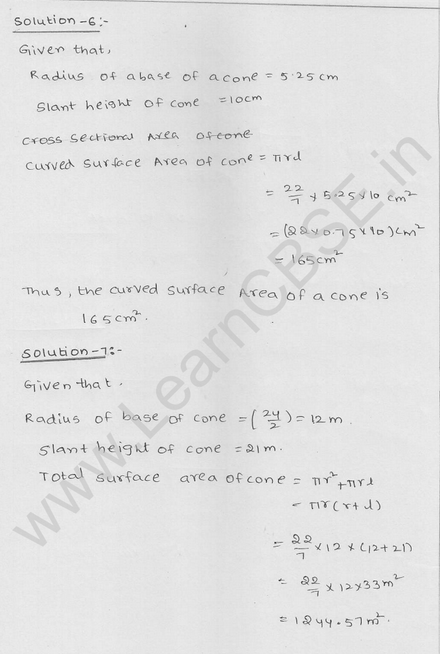 Solution-6:-
Given that,
Radius of a base of a cone = 5.25cm
Slant height of cone = 10cm
Cross sectional Area of cone
Curved surface Area of cone = πrl
= 22/7 × 5.25 × 10 cm²
= (22 × 0.75 × 10) cm²
= 165cm²
Thus, the curved surface Area of a cone is
165cm².
Solution-7:-
Given that.
Radius of base of cone = (24/2) = 12m.
Slant height of cone = 21m.
Total surface area of cone = πr² + πrl
= πr(r+l)
= 22/7 × 12 × (12+21)
= 22/7 × 12 × 33m²
= 1244.57m².
www.LearnCBSE.in